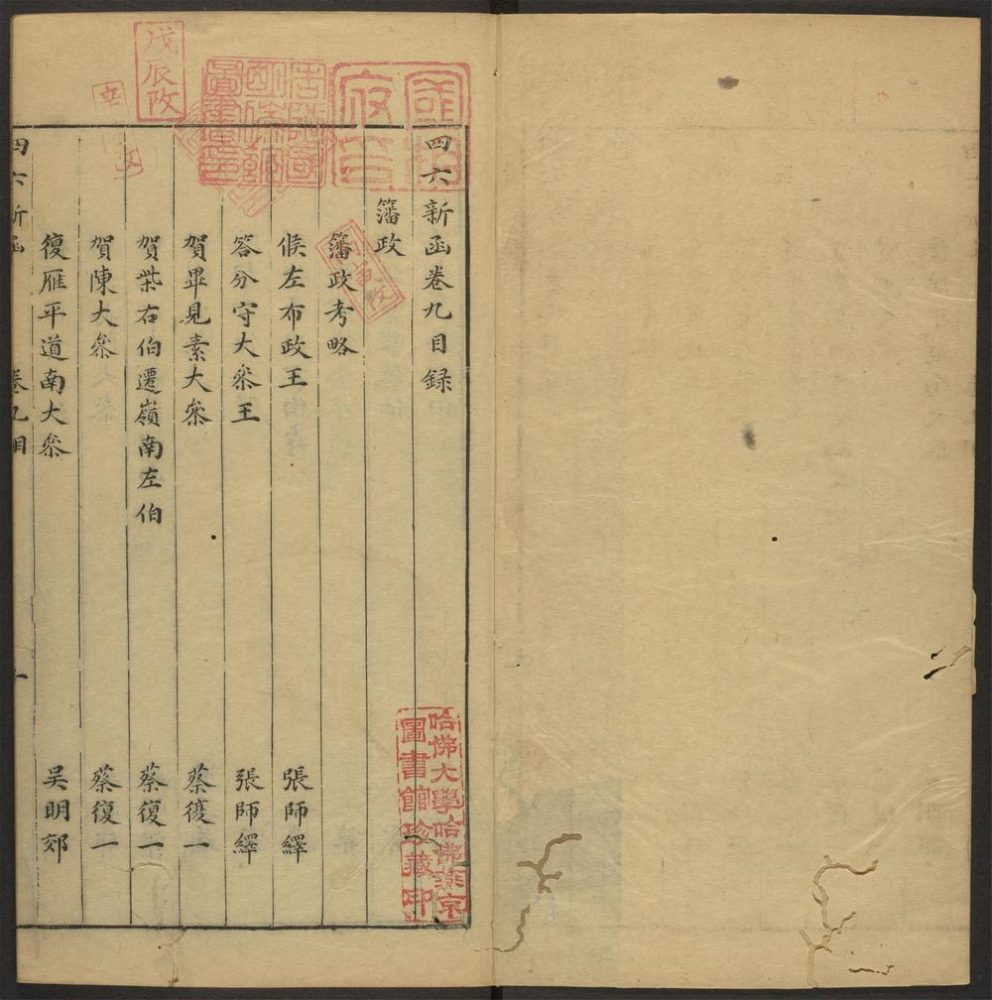 四六新函卷九目録
藩政
藩政考略
候左布政王 張師繹
答分守大叅王 張師繹
賀畢見素大叅 蔡復一
賀柴右伯遷嶺南左伯 蔡復一
賀陳大叅 蔡復一
復雁平道南大叅 吴明郊
四六新函 卷九目 一
戊辰改
哈佛大學哈佛燕京
圖書館珍藏印